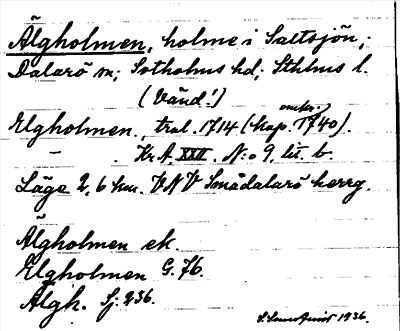 Älgholmen, holme i Saltsjön,;
Dalarö sn; Sotholms hd; Sthlms l.
(Vänd!)
Elgholmen, tral. 1714 (kop. omkr. 1740).
— . Kr. A. XXII. N:o 9, lit. b.
Läge 2,6 km. VNV Smådalarö herrg.
Älgholmen ek.
Elgholmen G. 76.
Älgh. Sj. 236.
1936.